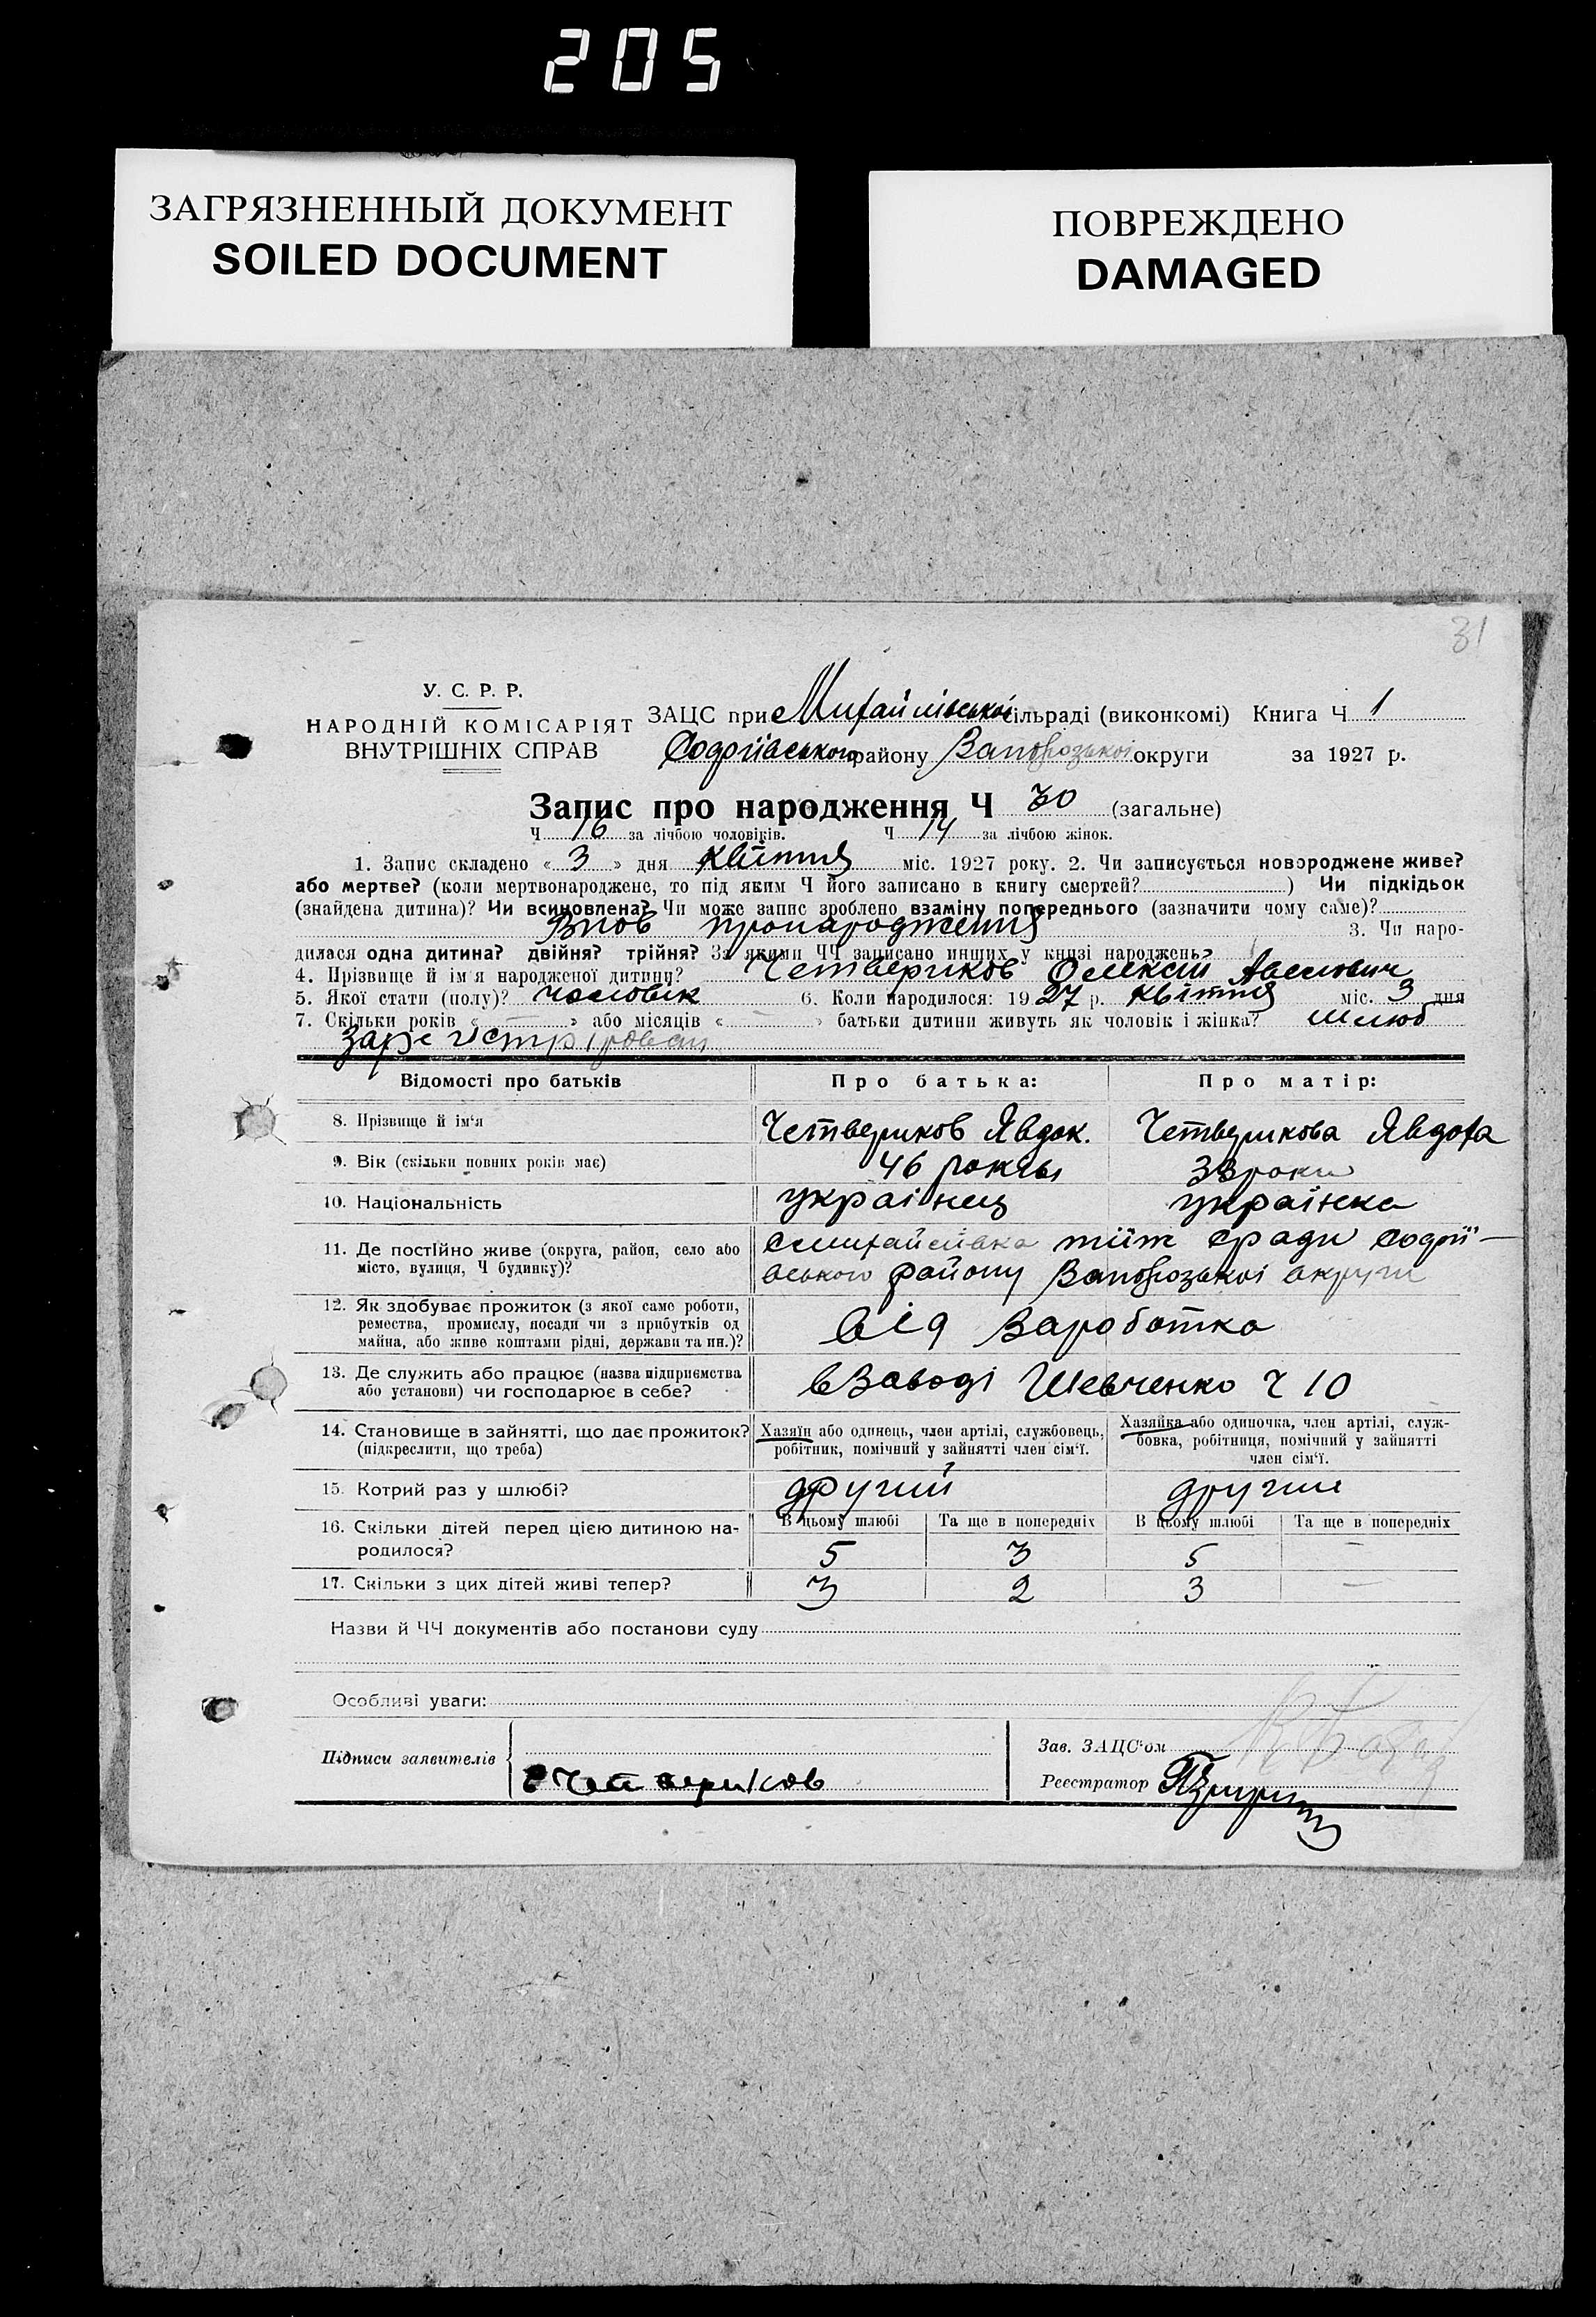 205
ЗАГРЯЗНЕННЫЙ ДОКУМЕНТ
SOILED DOCUMENT
ПОВРЕЖДЕНО
DAMAGED
31
У. С. Р. Р.
НАРОДНІЙ КОМІСАРІЯТ
ВНУТРІШНІХ СПРАВ
ЗАЦС при Михайлівської сільраді (виконкомі) Книга Ч 1
району Запорозької округи за 1927 р.
Запис про народження Ч 30 (загальне)
Ч 16 за лічбою чоловіків. Ч 14 за лічбою жінок.
1. Запис складено «3» дня квітня міс. 1927 року. 2. Чи записується новороджене живе?
або мертве? (коли мертвонароджене, то під яким Ч його записано в книгу смертей?) Чи підкідьок
(знайдена дитина)? Чи всиновлена? Чи може запис зроблено взаміну попереднього (зазначити чому саме)?
Внов пронародження 3. Чи наро-
дилася одна дитина? двійня? трійня? За якими ЧЧ записано инших у книзі народжень?
4. Прізвище й ім'я народженої дитини? Четвериков Олексій
5. Якої стати (полу)? чоловік 6. Коли народилося: 1927 р. квітня міс. 3 дня
7. Скільки років « — » або місяців « — » батьки дитини живуть як чоловік і жінка? шлюб
Відомості про батьків
Про батька:
Про матір:
8. Прізвище й ім'я Четвериков Явдок. Четверикова Явдоха
9. Вік (скільки повних років має) 46 33 роки
10. Національність українец українка
11. Де постійно живе (округа, район, село або
місто, вулиця, Ч будинку)?
району Запорозької округи
12. Як здобуває прожиток (з якої саме роботи,
ремества, промислу, посади чи з прибутків од
майна, або живе коштами рідні, держави та ин.)?
від Заработка
13. Де служить або працює (назва підприємства
або установи) чи господарює в себе?
в Заводі Шевченко Ч 10
14. Становище в зайнятті, що дає прожиток?
(підкреслити, що треба)
Хазяїн або одинець, член артілі, службовець,
робітник, помічний у зайнятті член сім'ї.
Хазяйка або одиночка, член артілі, служ-
бовка, робітниця, помічний у зайнятті
член сім'ї.
15. Котрий раз у шлюбі? другий други
16. Скільки дітей перед цією дитиною на-
родилося?
В цьому шлюбі Та ще в попередніх В цьому шлюбі Та ще в попередніх
5 3 5 —
17. Скільки з цих дітей живі тепер? 3 2 3 —
Назви й ЧЧ документів або постанови суду
Особливі уваги:
Підписи заявителів
Четвериков
Зав. ЗАЦС'ом
Реєстратор